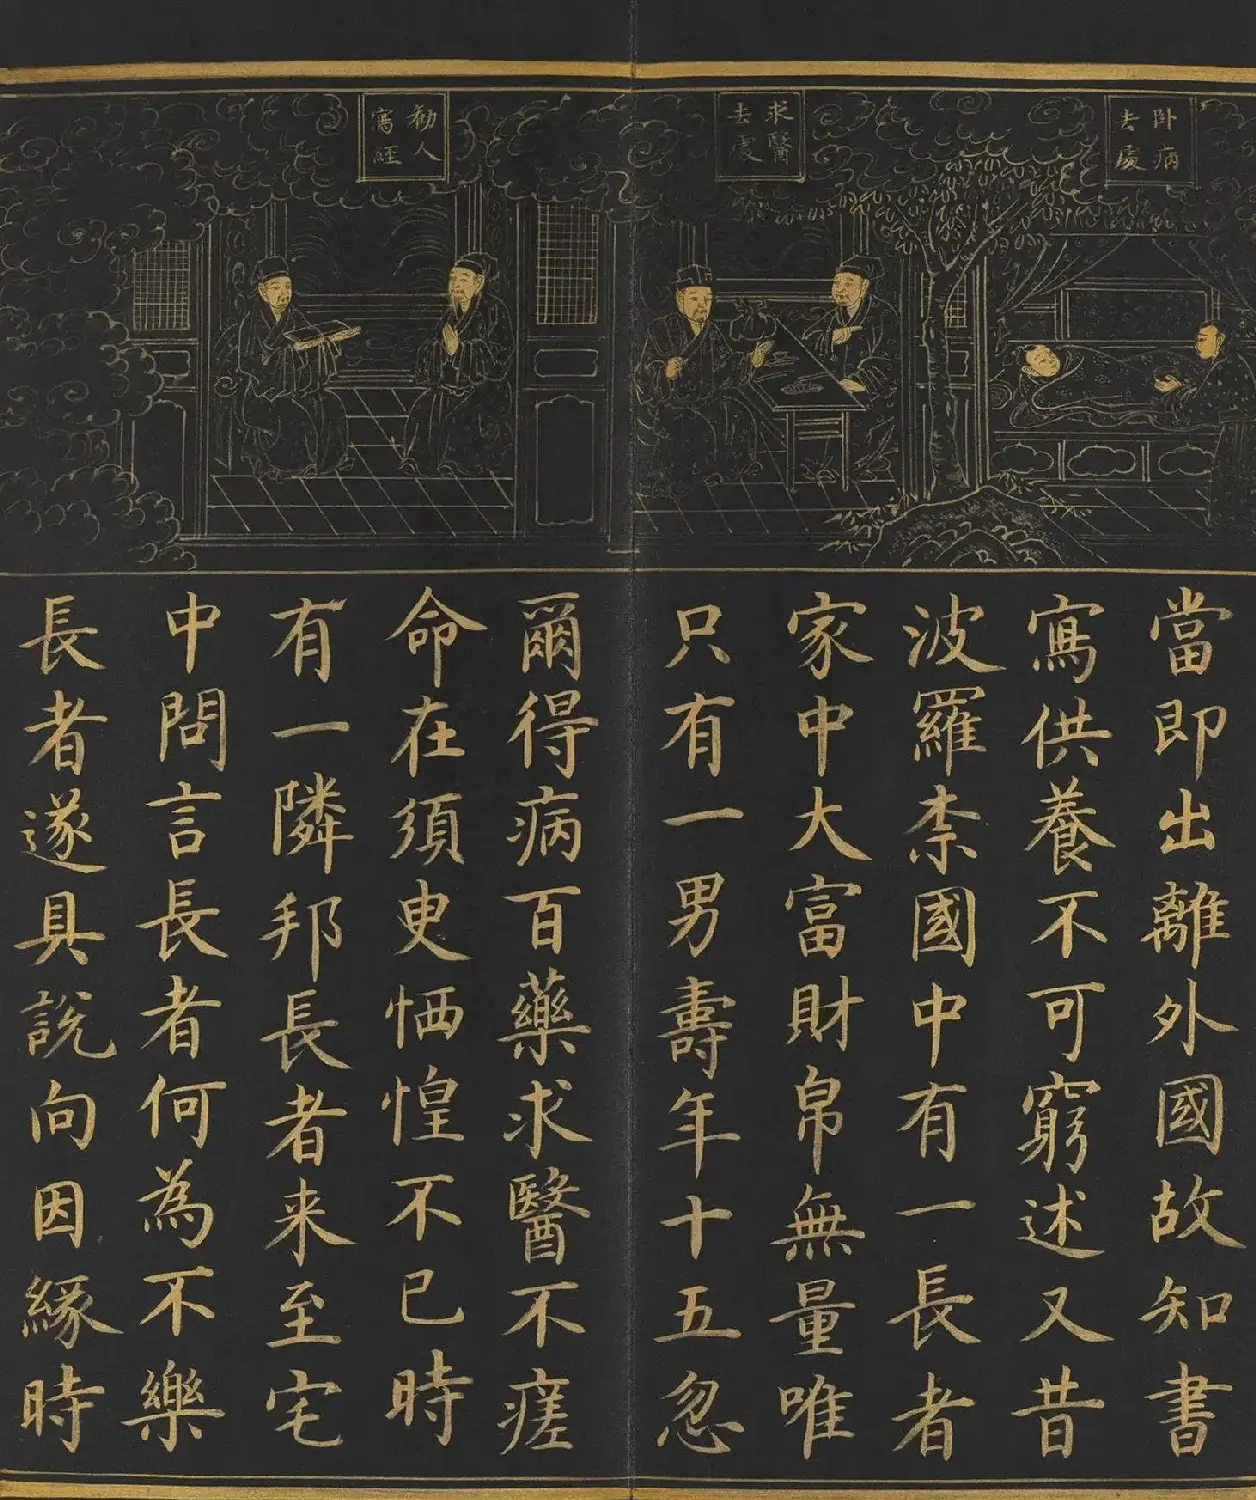 卧病
去處
求醫
去處
勸人
寫經
當即出離外國故知書
寫供養不可窮述又昔
波羅柰國中有一長者
家中大富財帛無量唯
只有一男壽年十五忽
爾得病百藥求醫不瘥
命在須臾恓惶不已時
有一隣邦長者来至宅
中問言長者何為不樂
長者遂具說向因緣時